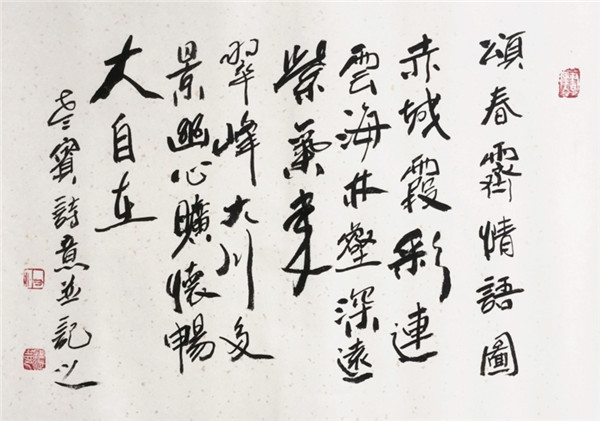 頌春霽情語圖
赤城霞彩連
雲海林壑深遠
紫氣來
翠峰大川多
景幽心曠懷暢
大自在
詩意並記之